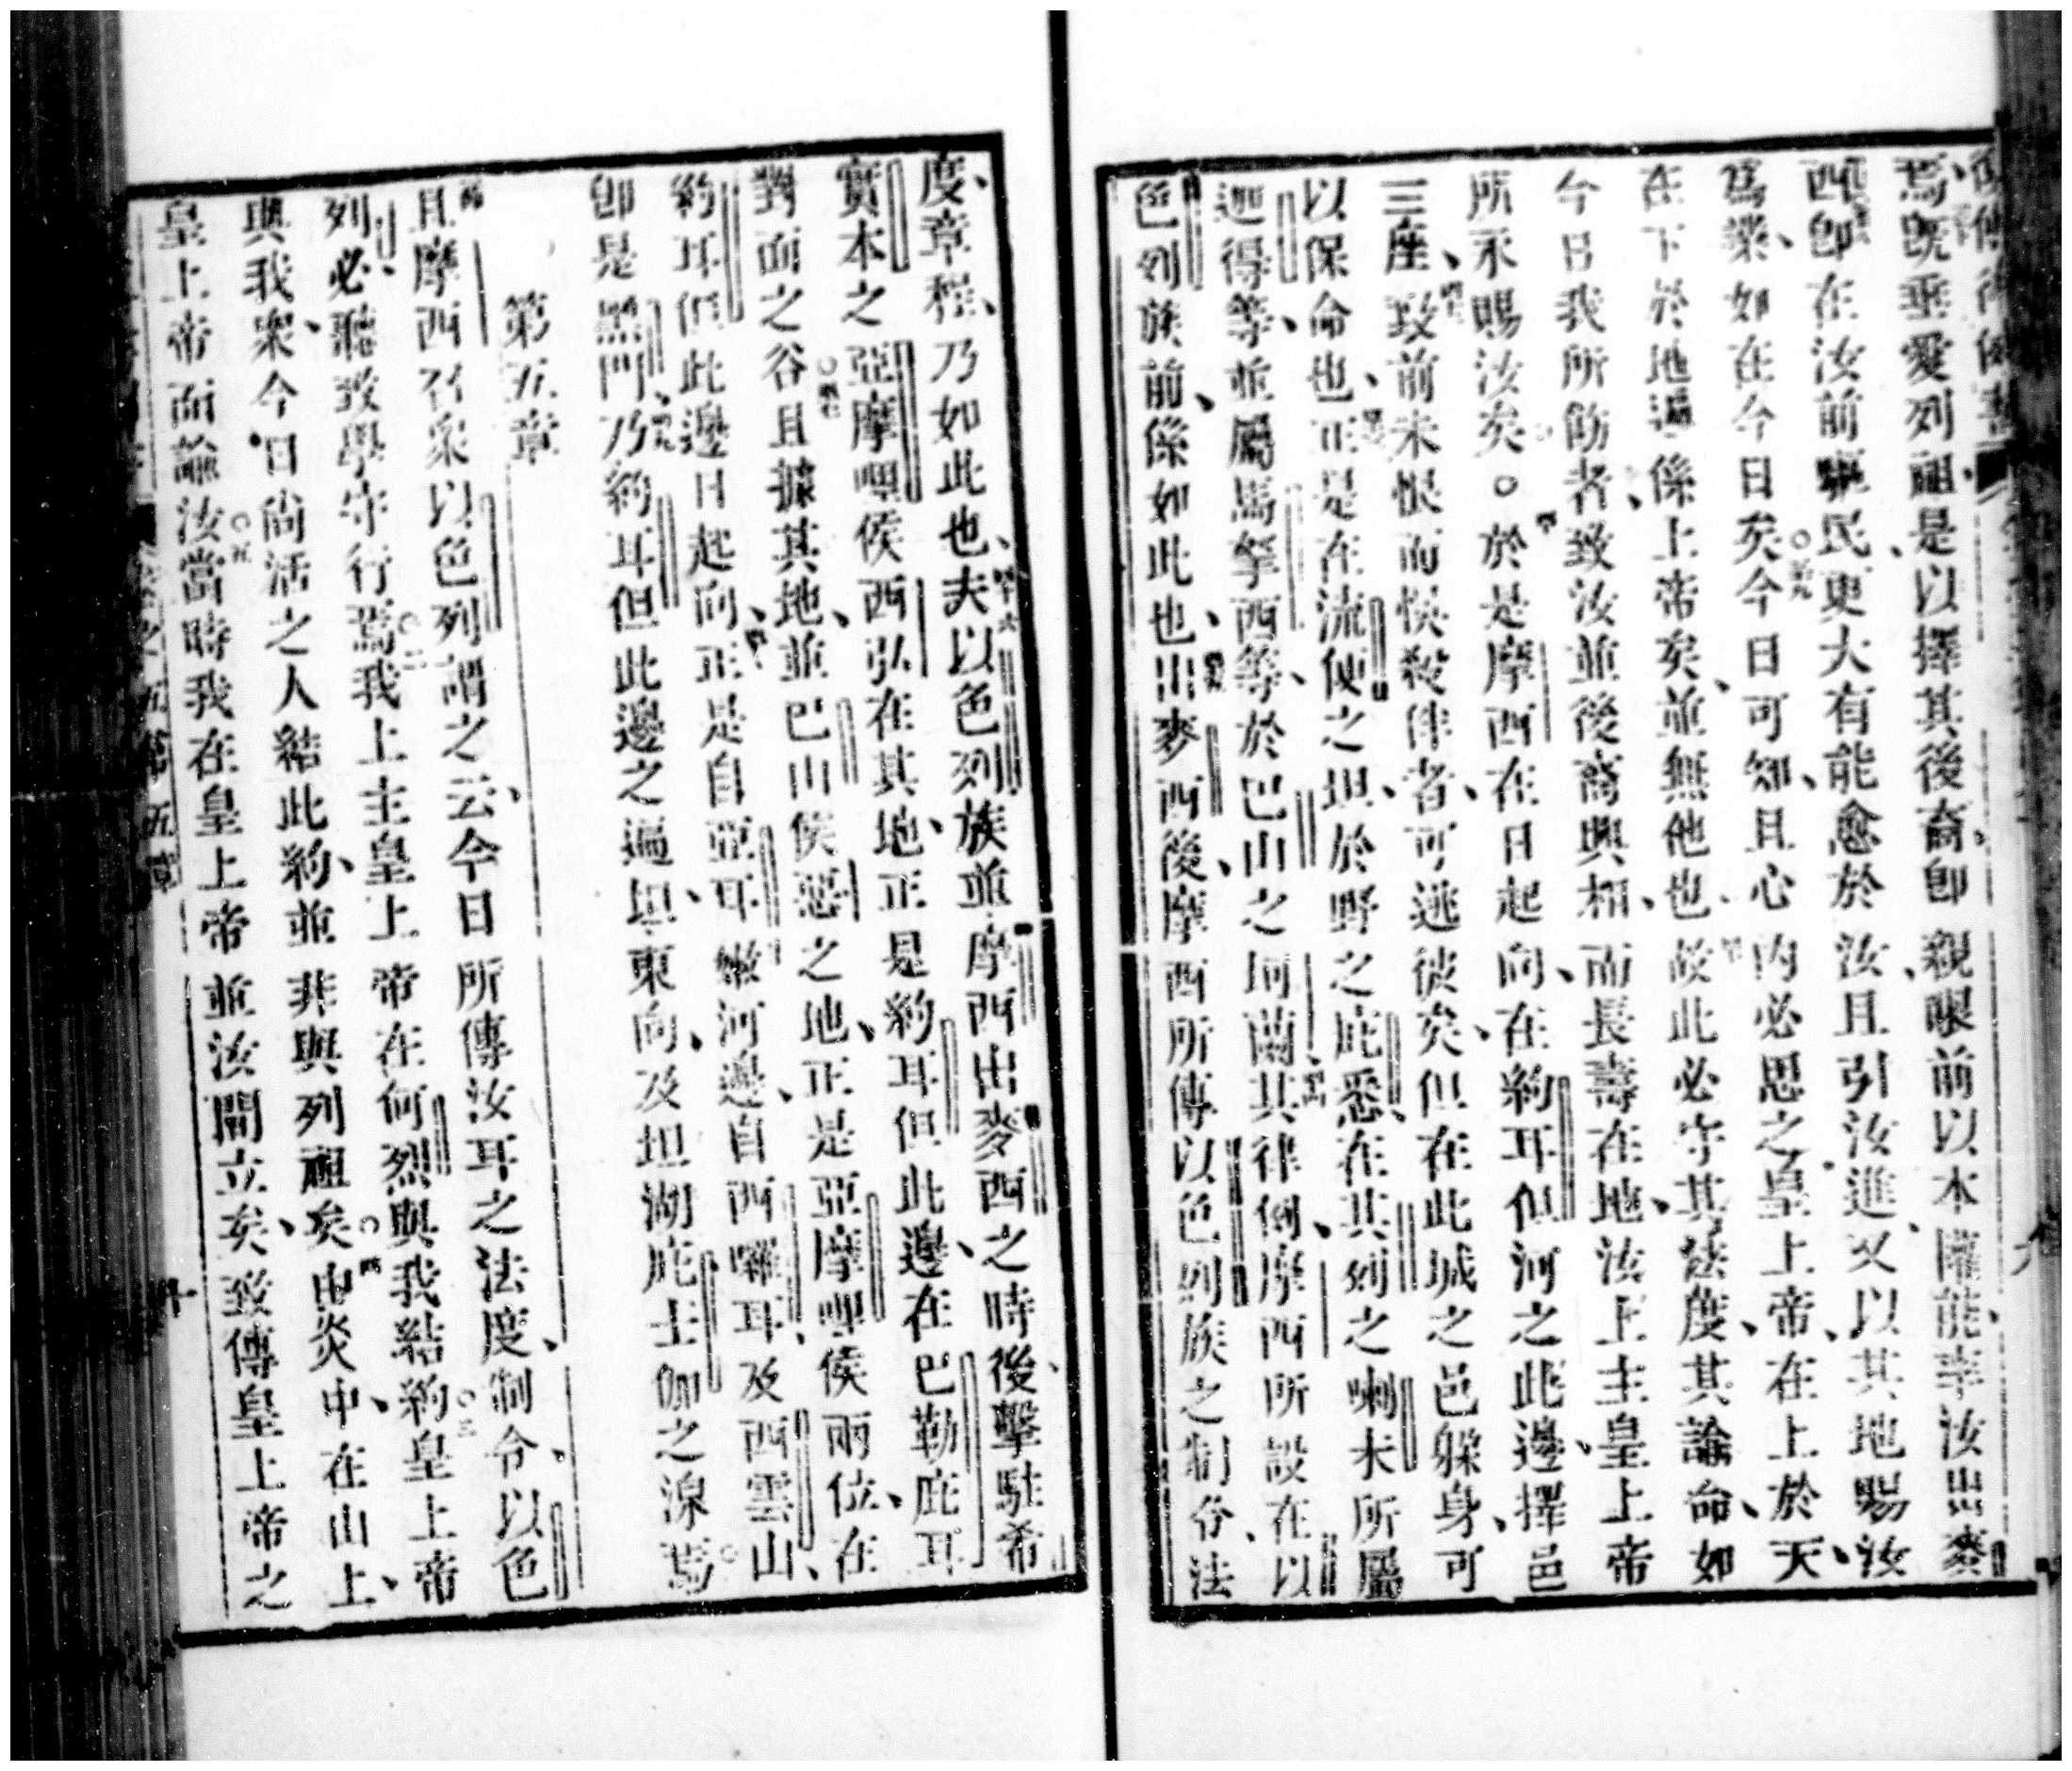 焉、既垂愛列祖、是以擇其後裔、即親眼前以本權能、率汝出麥
西、即在汝前驅民、更大有能愈於汝、且引汝進、又以其地賜汝
爲業、如在今日矣○今日可知、且心內必思之、皇上帝、在上於天、
在下於地遍係上帝矣、並無他也、故此必守其法度、其諭命、如
今日我所飭者、致汝並後裔興相、而長壽在地、汝上主皇上帝
所永賜汝矣。○於是摩西在日起向、在約耳但河之此邊、擇邑
三座、致前未恨而悞殺伴者、可逃彼矣、但在此城之邑躲身、可
以保命也、正是在流便之坦、於野之庇悉、在其列之喇末所屬
迦得等、並屬馬拏西等、於巴山之坷蘭、其律例、摩西所設在以
色列族前、係如此也、出麥西後、摩西所傳以色列族之制令、法
度、章程、乃如此也、夫以色列族並摩西出麥西之時後、擊駐希
實本之亞摩哩侯西弘在其地、正是約耳但此邊、在巴勒庇耳
對面之谷○且據其地、並巴山侯惡之地、正是亞摩哩侯兩位、在
約耳但此邊日起向、正是自亞耳嫩河邊、自西囉耳、及西雲山、
即是黑門、乃約耳但此邊之遍坦、東向、及坦湖庇士伽之湶焉。
第五章
且摩西召衆以色列謂之云、今日所傳汝耳之法度、制令、以色
列、必聽致學守行焉○二我上主皇上帝在何烈與我結約○三皇上帝
與我衆、今日尚活之人結此約、並非與列祖矣○四由炎中、在山上、
皇上帝面諭汝○五當時我在皇上帝並汝間立矣、致傳皇上帝之
五 第五章